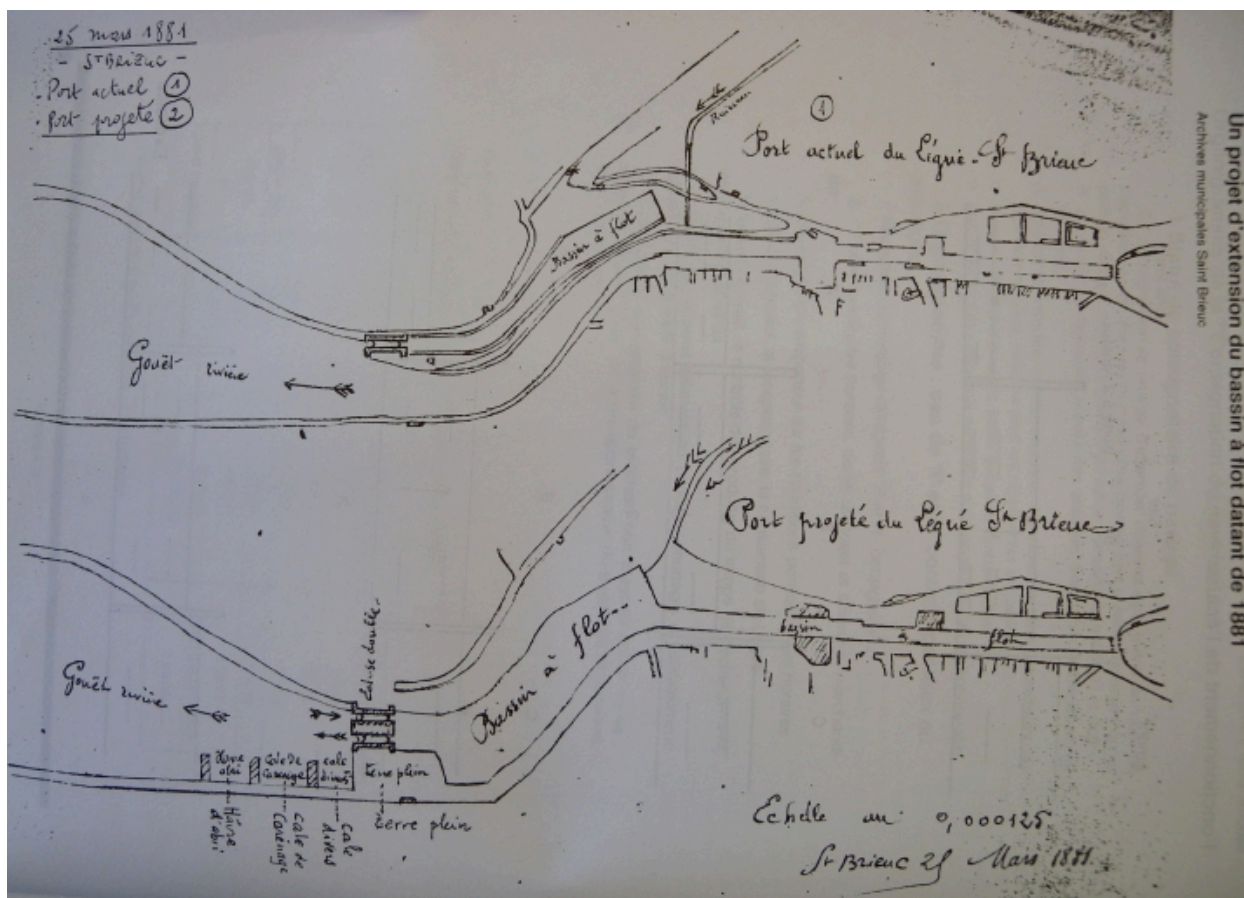 25 mars 1881
- St Brieuc -
. Port actuel ①
. Port projeté ②
Ruisseau
①
Port actuel du Légué - St Brieuc
Bassin à flot
Gouët rivière
Port projeté du Légué St Brieuc
bassin à flot
Bassin à flot
Ecluse double
Gouët rivière
Havre abri
Cale de Carenage
cale divers
terre plein
Hâvre d'abri
cale de Carénage
cale divers
terre plein
Echelle au 0,000125
St Brieuc 25 Mars 1881
Un projet d'extension du bassin à flot datant de 1881
Archives municipales Saint Brieuc